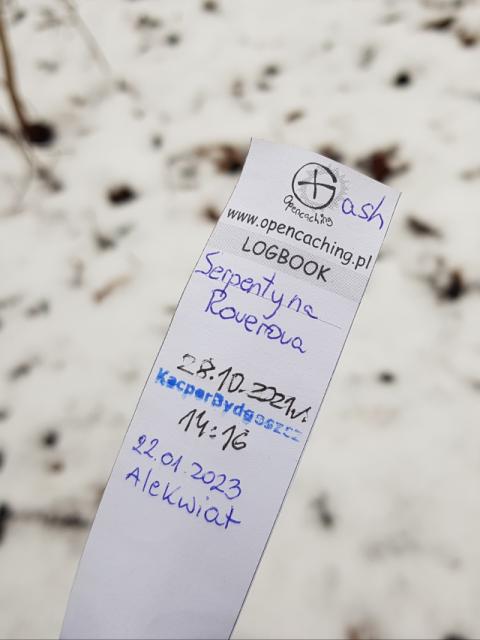 Gash
Opencaching
www.opencaching.pl
LOGBOOK
Serpentyna
Rowerowa
28.10.2021r.
KacperBydgoszcz
14:16
22.01.2023
Alekwiat